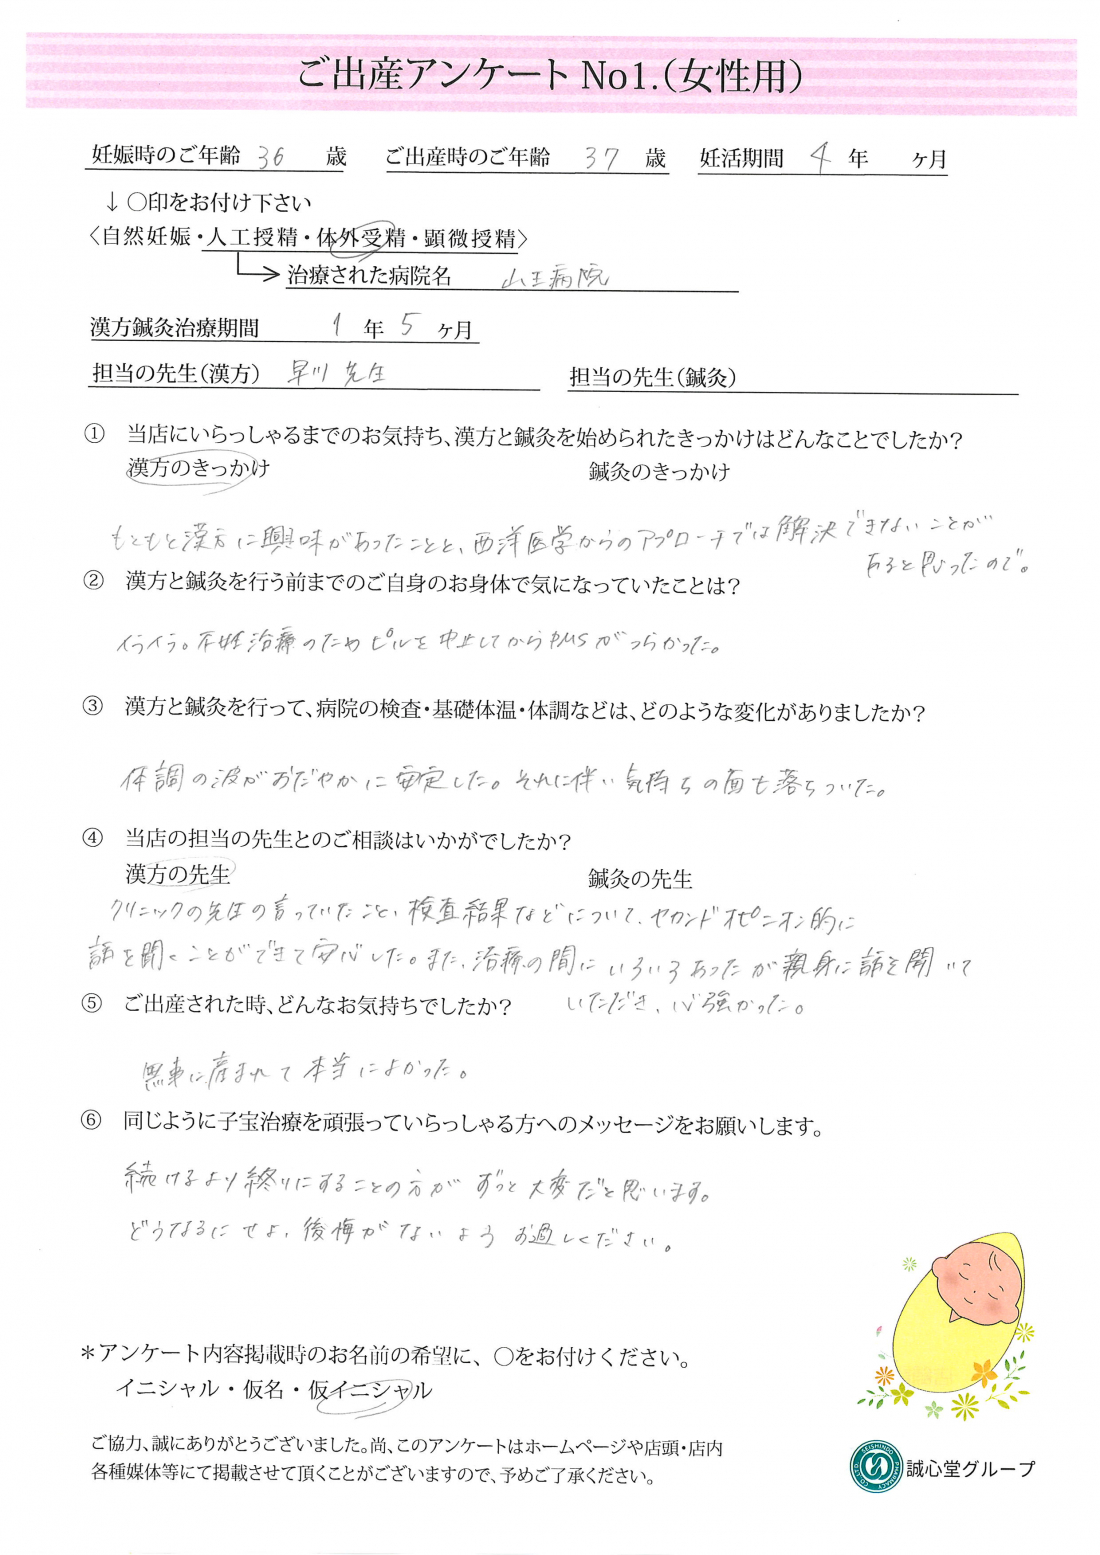 ご出産アンケート No1.（女性用）
妊娠時のご年齢 36 歳 ご出産時のご年齢 37 歳 妊活期間 4 年 ヶ月
↓ 〇印をお付け下さい
〈自然妊娠・人工授精・体外受精・顕微授精〉
治療された病院名 山王病院
漢方鍼灸治療期間 1 年 5 ヶ月
担当の先生（漢方） 早川 先生 担当の先生（鍼灸）
① 当店にいらっしゃるまでのお気持ち、漢方と鍼灸を始められたきっかけはどんなことでしたか？
漢方のきっかけ 鍼灸のきっかけ
もともと漢方に興味があったことと、西洋医学からのアプローチでは解決できないことが
あると思ったので。
② 漢方と鍼灸を行う前までのご自身のお身体で気になっていたことは？
イライラ。不妊治療のためピルを中止してからPMSがつらかった。
③ 漢方と鍼灸を行って、病院の検査・基礎体温・体調などは、どのような変化がありましたか？
体調の波がおだやかに安定した。それに伴い気持ちの面も落ちついた。
④ 当店の担当の先生とのご相談はいかがでしたか？
漢方の先生 鍼灸の先生
クリニックの先生の言っていたこと、検査結果などについて、セカンドオピニオン的に
話を聞くことができて安心した。また、治療の間にいろいろあったが親身に話を聞いて
いただき、心強かった。
⑤ ご出産された時、どんなお気持ちでしたか？
無事に産まれて本当によかった。
⑥ 同じように子宝治療を頑張っていらっしゃる方へのメッセージをお願いします。
続けるより終りにすることの方がずっと大変だと思います。
どうなるにせよ、後悔がないようお過しください。
＊アンケート内容掲載時のお名前の希望に、〇をお付けください。
イニシャル・仮名・仮イニシャル
ご協力、誠にありがとうございました。尚、このアンケートはホームページや店頭・店内
各種媒体等にて掲載させて頂くことがございますので、予めご了承ください。
SEISHINDO PHARMACY CO., LTD.
誠心堂グループ